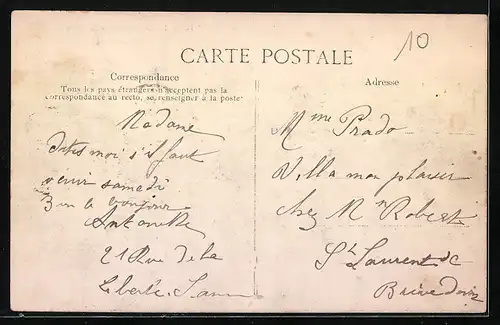 CARTE POSTALE
10
Correspondance
Tous les pays étrangers n'acceptent pas la
correspondance au recto, se renseigner à la poste
Madame
dites moi s'il faut
venir samedi
bonjour
Antoinette
21 Rue de la
Liberté
Adresse
Mme Prado
Villa mon plaisir
chez Mr Robert
St Laurent de
Brive